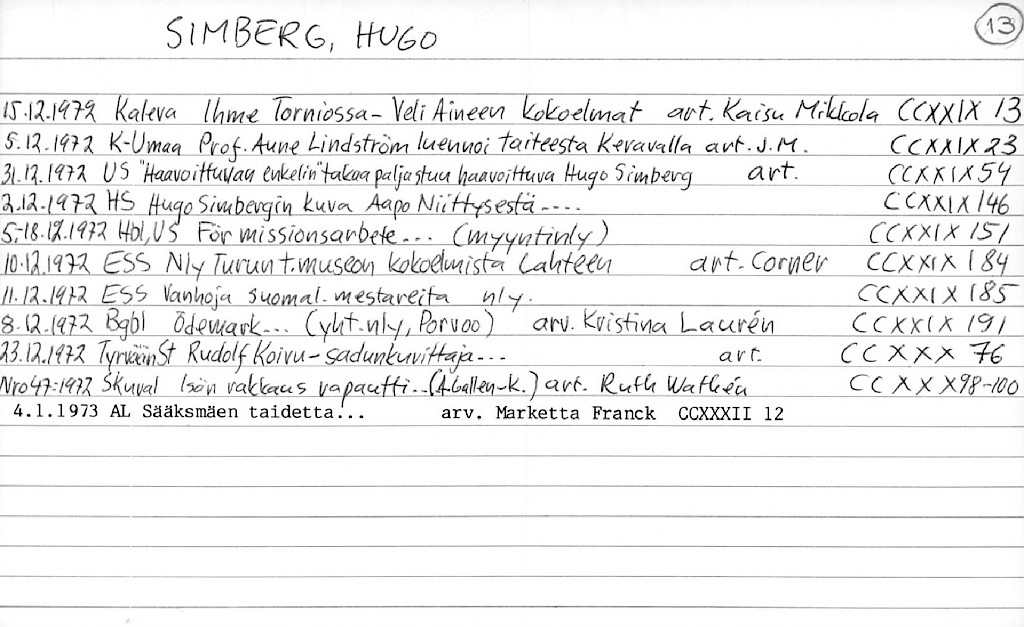 SIMBERG, HUGO 13
15.12.1972 Kaleva Ihme Torniossa - Veli Aineen kokoelmat art. Kaisu Mikkola CCXXIX 13
5.12.1972 K-Umaa Prof. Aune Lindström luennoi taiteesta Keravalla art. J.M. CCXXIX 23
31.12.1972 US "Haavoittuvan enkelin" takaa paljastuu haavoittuva Hugo Simberg art. CCXXIX 54
2.12.1972 HS Hugo Simbergin kuva Aapo Niittysestä.... CCXXIX 146
5.-18.12.1972 Hbl, US För missionsarbete... (myyntinly) CCXXIX 151
10.12.1972 ESS Nly Turun t.museon kokoelmista Lahteen art. Corner CCXXIX 184
11.12.1972 ESS Vanhoja suomal. mestareita nly. CCXXIX 185
8.12.1972 Bgbl Ödemark... (yht.nly, Porvoo) arv. Kristina Laurén CCXXIX 191
23.12.1972 TyrväänSt Rudolf Koivu - sadunkuvittaja... art. CCXXX 76
Nro 47:1972 Skuval Ison rakkaus vapautti... (A.Gallen-K.) art. Ruth Wathén CCXXX98-100
4.1.1973 AL Sääksmäen taidetta... arv. Marketta Franck CCXXXII 12